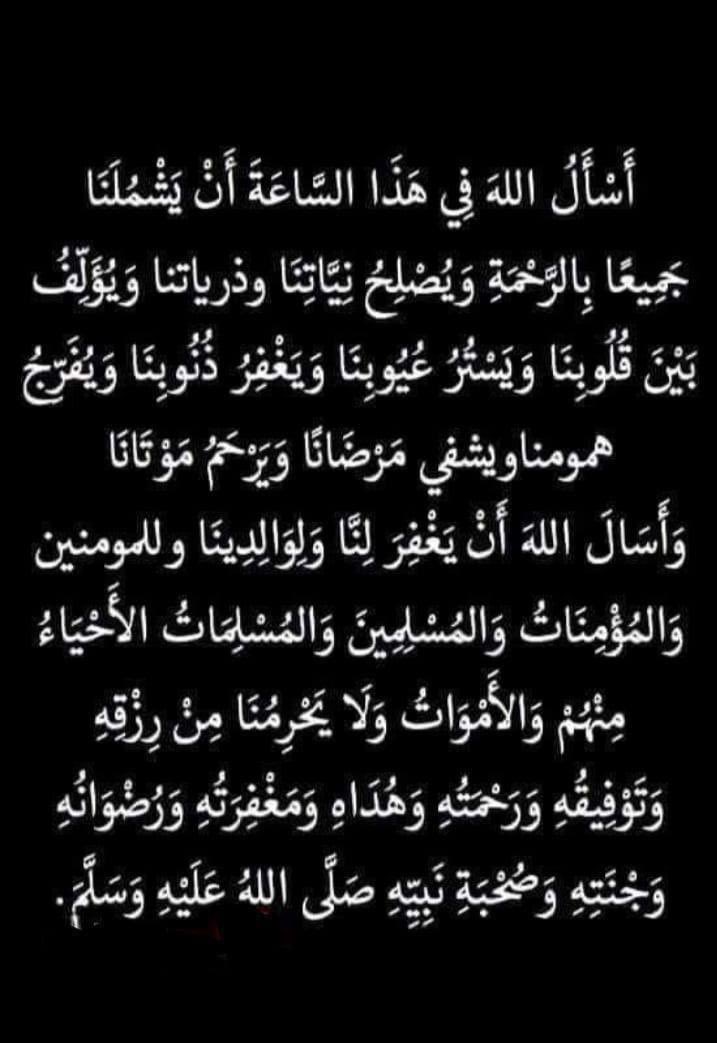 أَسْأَلُ اللهَ فِي هَذَا السَّاعَةَ أَنْ يَشْمُلَنَا
جَمِيعًا بِالرَّحْمَةِ وَيُصْلِحُ نِيَّاتِنَا وذرياتنا وَيُؤَلِّفُ
بَيْنَ قُلُوبِنَا وَيَسْتُرُ عُيُوبِنَا وَيَغْفِرُ ذُنُوبِنَا وَيُفَرِّجُ
همومناويشفي مَرْضَانًا وَيَرْحَمُ مَوْتَانَا
وَأَسَالَ اللهَ أَنْ يَغْفِرَ لِنَّا وَلِوَالِدِينَا وللمومنين
وَالمُؤْمِنَاتُ وَالمُسْلِمِينَ وَالمُسْلِمَاتُ الأَحْيَاءُ
مِنْهُمْ وَالأَمْوَاتُ وَلَا يَحْرِمُنَا مِنْ رِزْقِهِ
وَتَوْفِيقُهِ وَرَحْمَتُهِ وَهُدَاهِ وَمَغْفِرَتُهِ وَرُضْوَانُهِ
وَجْنَتِهِ وَصُحْبَةِ نَبِيِّهِ صَلَّى اللهُ عَلَيْهِ وَسَلَّمَ.